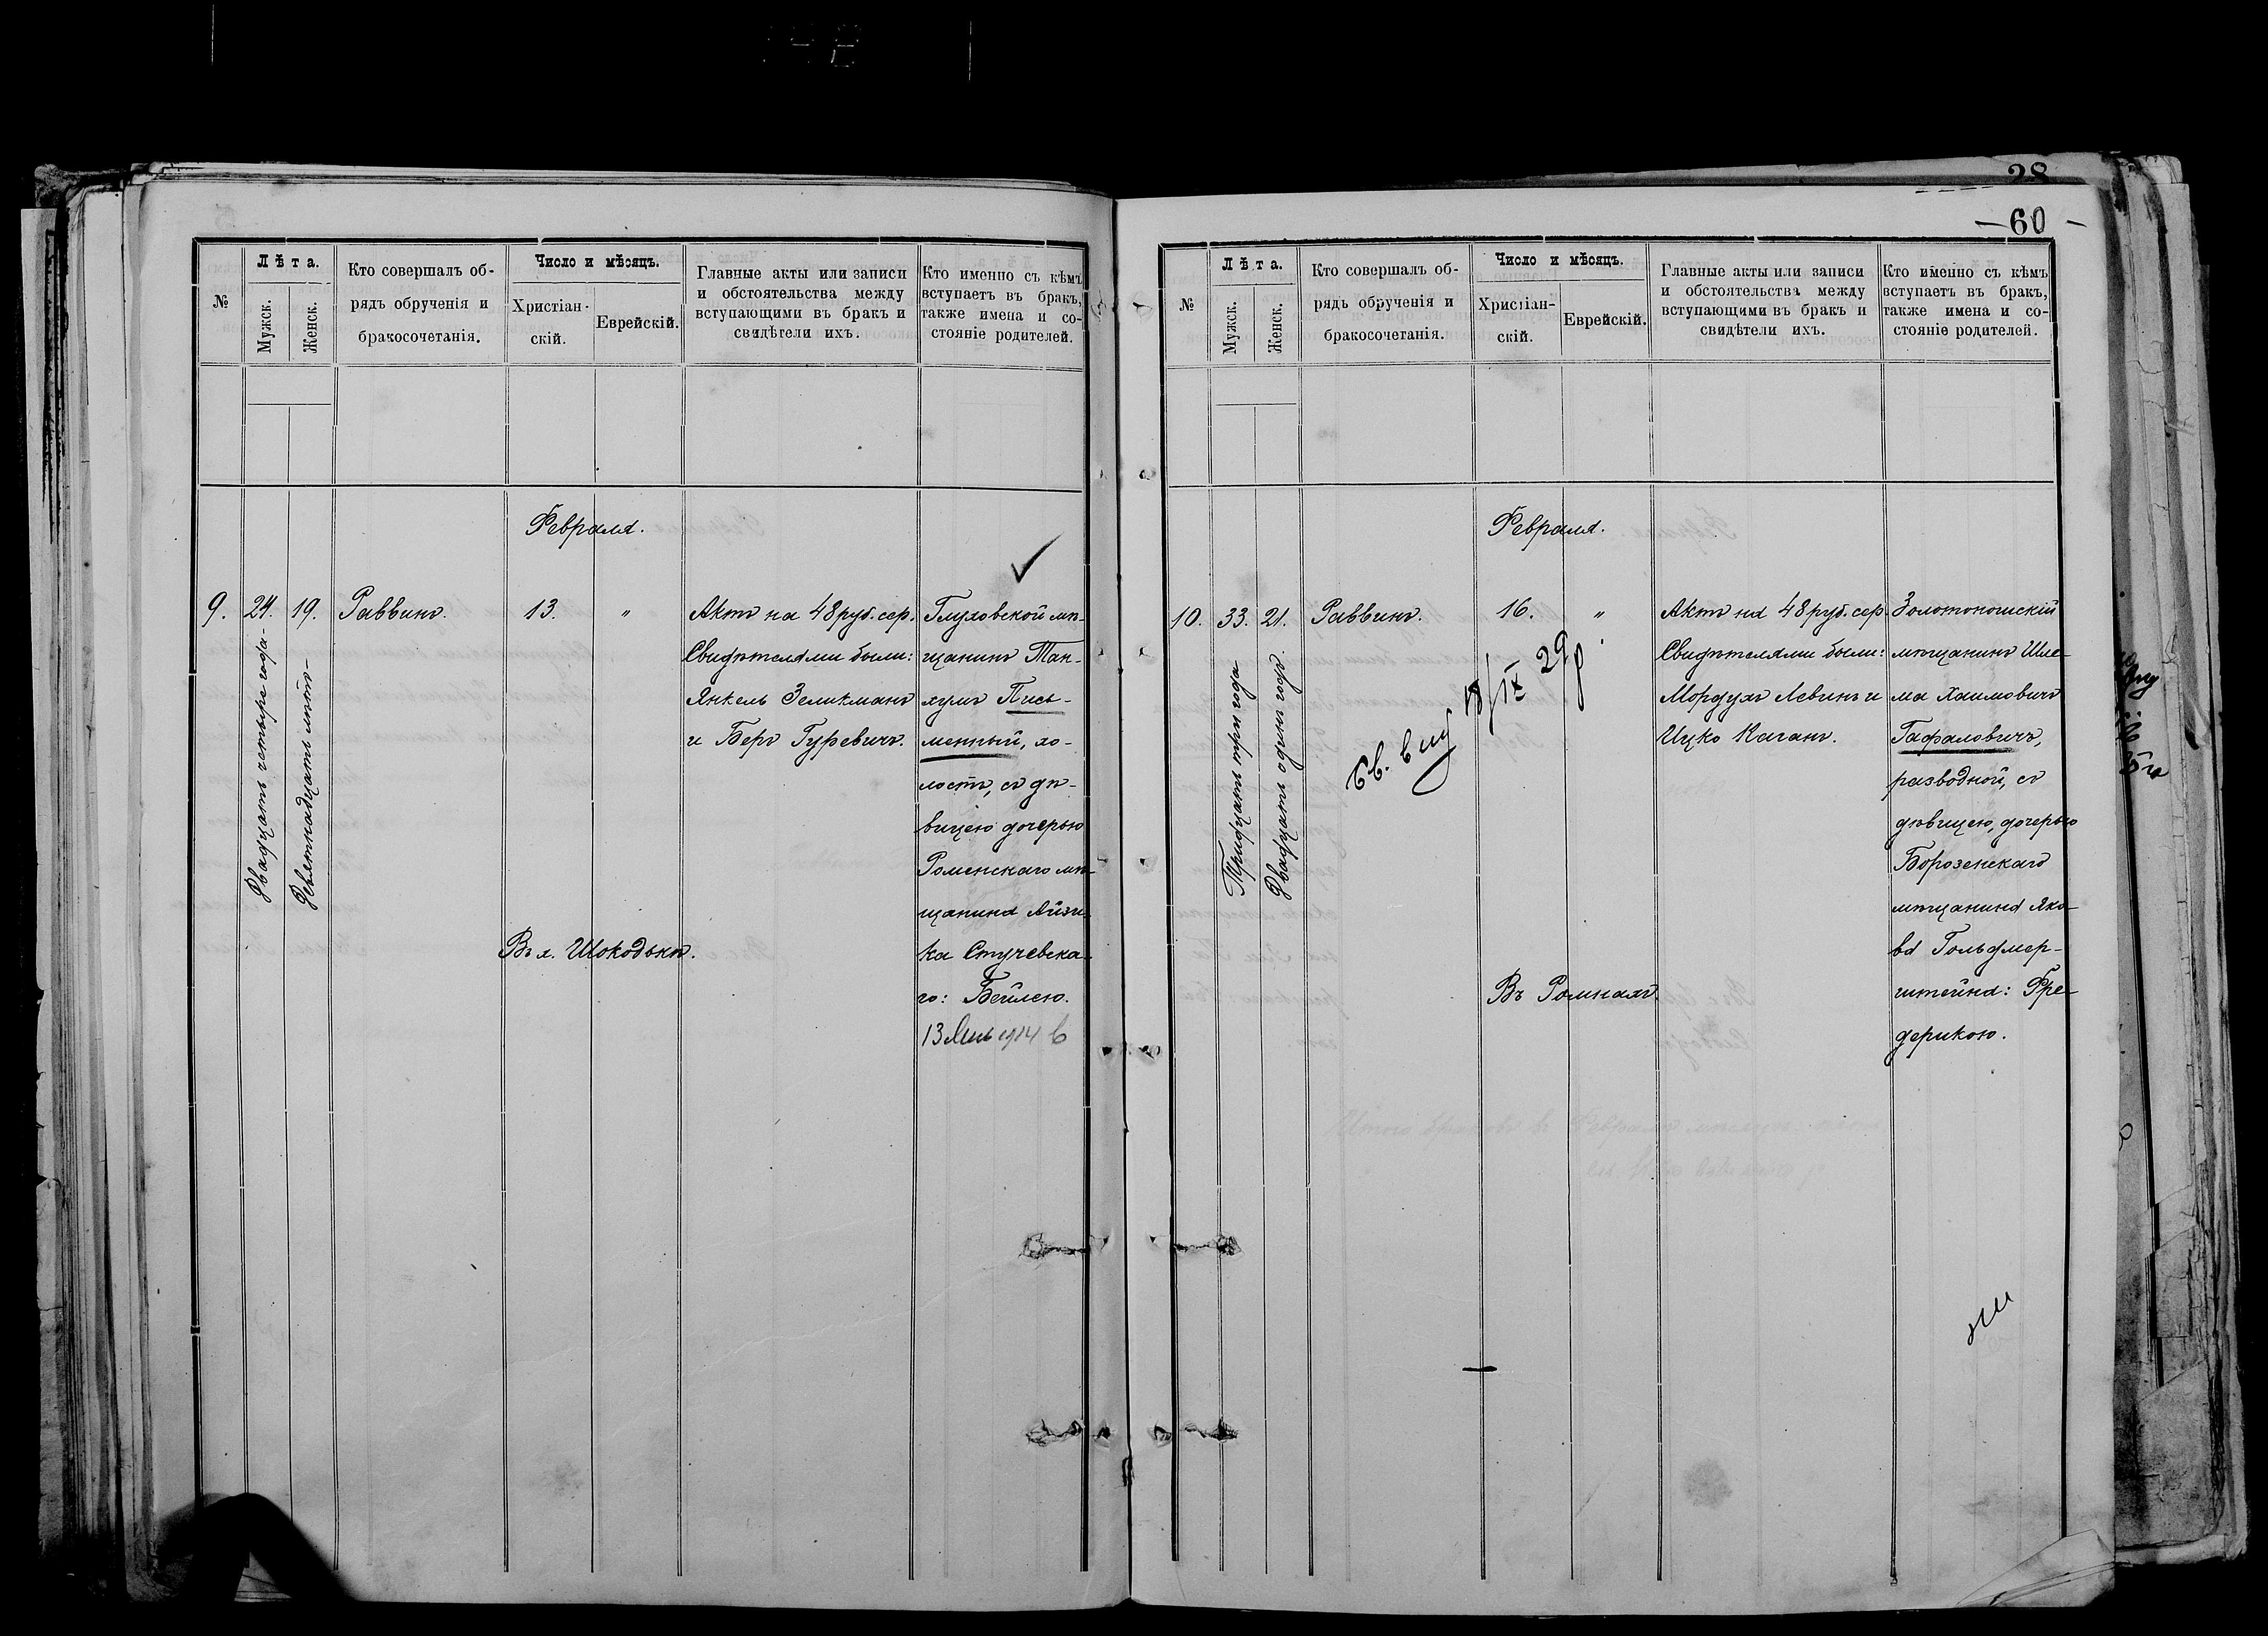 28
— 60 —
№
Лѣта.
Мужск.
Женск.
Кто совершалъ об-
рядъ обрученія и
бракосочетанія.
Число и мѣсяцъ.
Христіан-
скій.
Еврейскій.
Главные акты или записи
и обстоятельства между
вступающими въ бракъ и
свидѣтели ихъ.
Кто именно съ кѣмъ
вступаетъ въ бракъ,
также имена и со-
стояніе родителей.
Февраля.
9.
24.
Двадцать четыре года
19.
Девятнадцать лѣтъ
Раввинъ.
13.
"
Въ Шокодькѣ.
Актъ на 48 руб. сер.
Свидѣтелями были:
Янкель Зеликманъ
и Беръ Гуревичъ.
Глуховской мѣ-
щанинъ Тан-
хумъ Пись-
менный, хо-
лостъ, съ дѣ-
вицею дочерью
Роменскаго мѣ-
щанина Айзи-
ка Стучевска-
го: Бейлею.
13 1914
№
Лѣта.
Мужск.
Женск.
Кто совершалъ об-
рядъ обрученія и
бракосочетанія.
Число и мѣсяцъ.
Христіан-
скій.
Еврейскій.
Главные акты или записи
и обстоятельства между
вступающими въ бракъ и
свидѣтели ихъ.
Кто именно съ кѣмъ
вступаетъ въ бракъ,
также имена и со-
стояніе родителей.
Февраля.
10.
33.
Тридцать три года
21.
Двадцать одинъ годъ.
Раввинъ.
16.
"
IX 29
Въ Ромнахъ.
Актъ на 48 руб. сер.
Свидѣтелями были:
Мордухъ Левинъ и
Ицко Каганъ.
Золотоношскій
мѣщанинъ Шле-
ма Хаимовичъ
Гафаловичъ,
разводной, съ
дѣвицею, дочерью
Борозенскаго
мѣщанина Яко-
ва Гольдмер-
штейна: Фре-
дерикою.